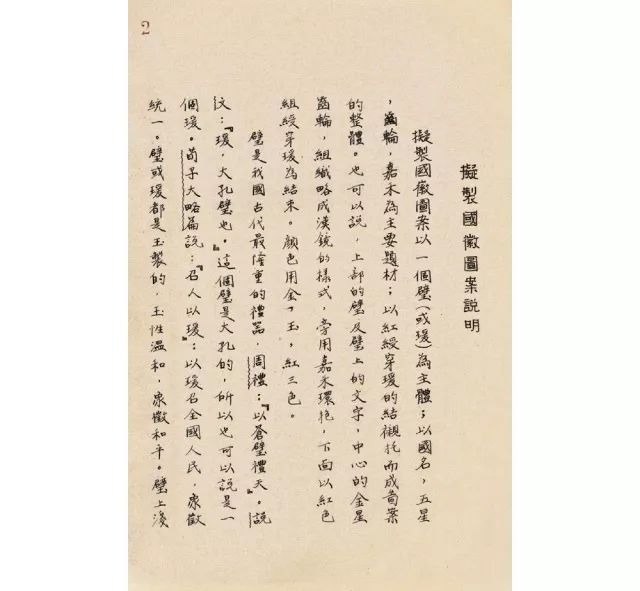 2
擬製國徽圖案説明
擬製國徽圖案以一個璧(或瑗)為主體；以國名，五星
，齒輪，嘉禾為主要題材；以紅綬穿瑗的結襯托而成圖案
的整體。也可以說，上部的璧及璧上的文字，中心的金星
齒輪，組織略成漢鏡的樣式，旁用嘉禾環抱，下面以紅色
組綬穿瑗為結束。顏色用金，玉，紅三色。
璧是我國古代最隆重的禮器，周禮：『以蒼璧禮天。說
文：『瑗，大孔璧也。』這個璧是大孔的，所以也可以說是一
個瑗。荀子大略篇說：『召人以瑗』；以瑗召全國人民，象徵
統一。璧或瑗都是玉製的，玉性溫和，象徵和平。璧上淺